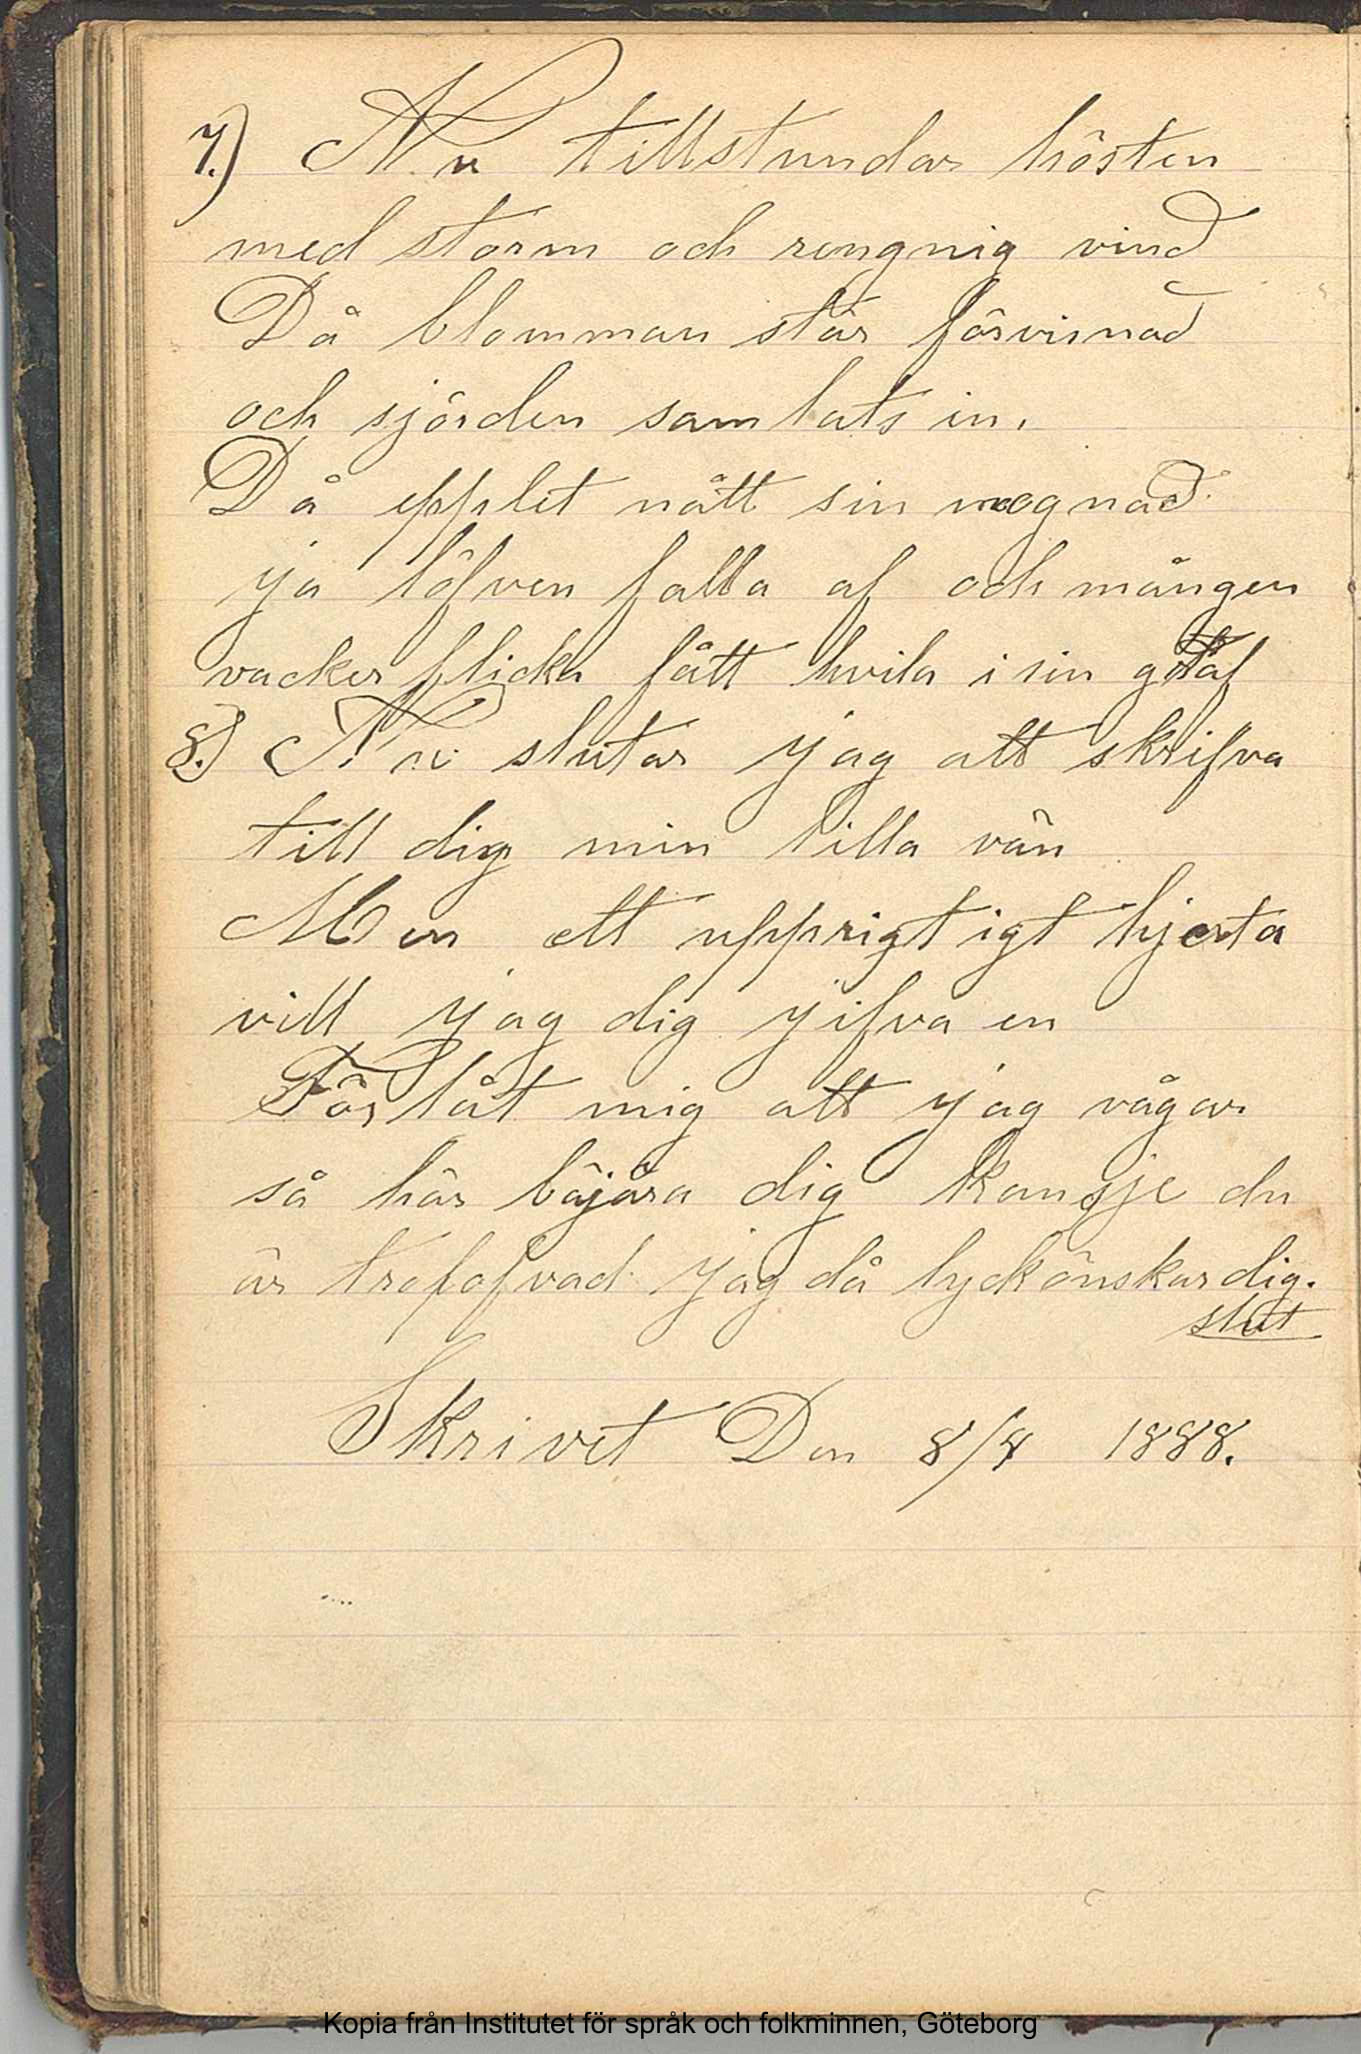 7.) Nu tillstundar hösten
med storm och rengnig vind
Då blomman står förvisnad
och sjörden samlats in.
Då epplet nått sin mognad
ja löfven falla af och mången
vacker flicka fått hvila i sin graf
8.) Nu slutar jag att skrifva
till dig min lilla vän
Men ett upprigtigt hjerta
vill jag dig jifva en
Förlåt mig att jag vågar
så här bäjära dig kansje du
är trofofvad jag då lyckönskar dig.
slut
Skrivet Den 8/8 1888.
Kopia från Institutet för språk och folkminnen, Göteborg